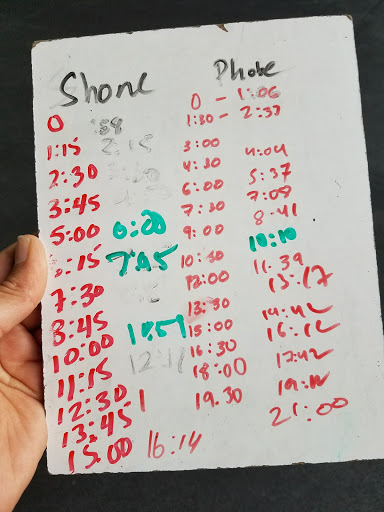 Shone Phobe
0 :59 0 - 1:06
1:15 2:15 1:30 - 2:37
2:30 3:00 4:04
3:45 4:30 5:37
5:00 6:00 6:00 7:09
:15 7:30 8:41
7:30 9:00 10:10
8:45 10:30 11.39
10:00 12:00 13:17
11:15 13:30 14:42
12:30 15:00 16:12
13:45 16:30 17:42
15.00 16:14 18:00
19.30 21:00